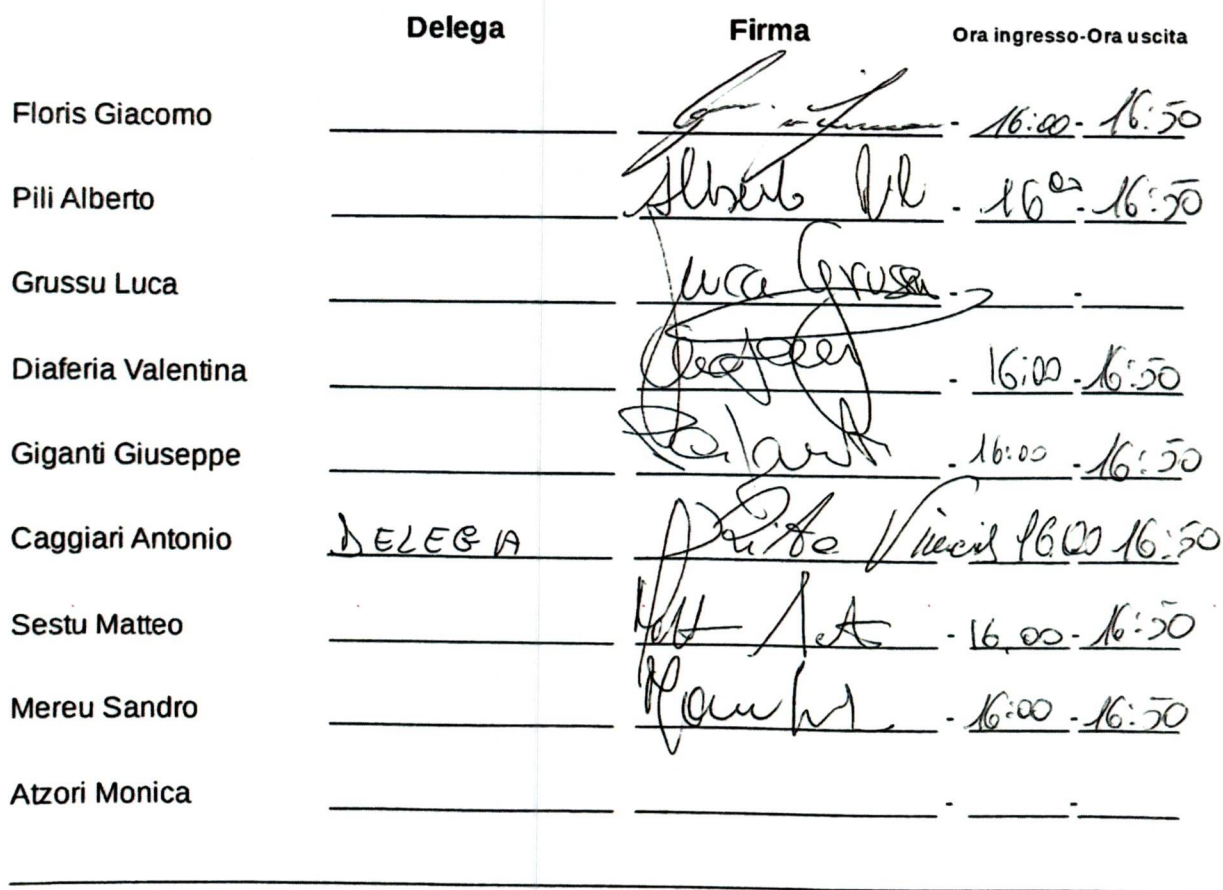 Delega Firma Ora ingresso-Ora uscita
Floris Giacomo - 16:00 - 16:50
Pili Alberto Alberto Pili - 16 00 - 16:50
Grussu Luca Luca Grussu - -
Diaferia Valentina - 16:00 - 16:50
Giganti Giuseppe - 16:00 - 16:50
Caggiari Antonio DELEGA 16.00 16:50
Sestu Matteo - 16.00 - 16:50
Mereu Sandro - 16:00 - 16:50
Atzori Monica - -